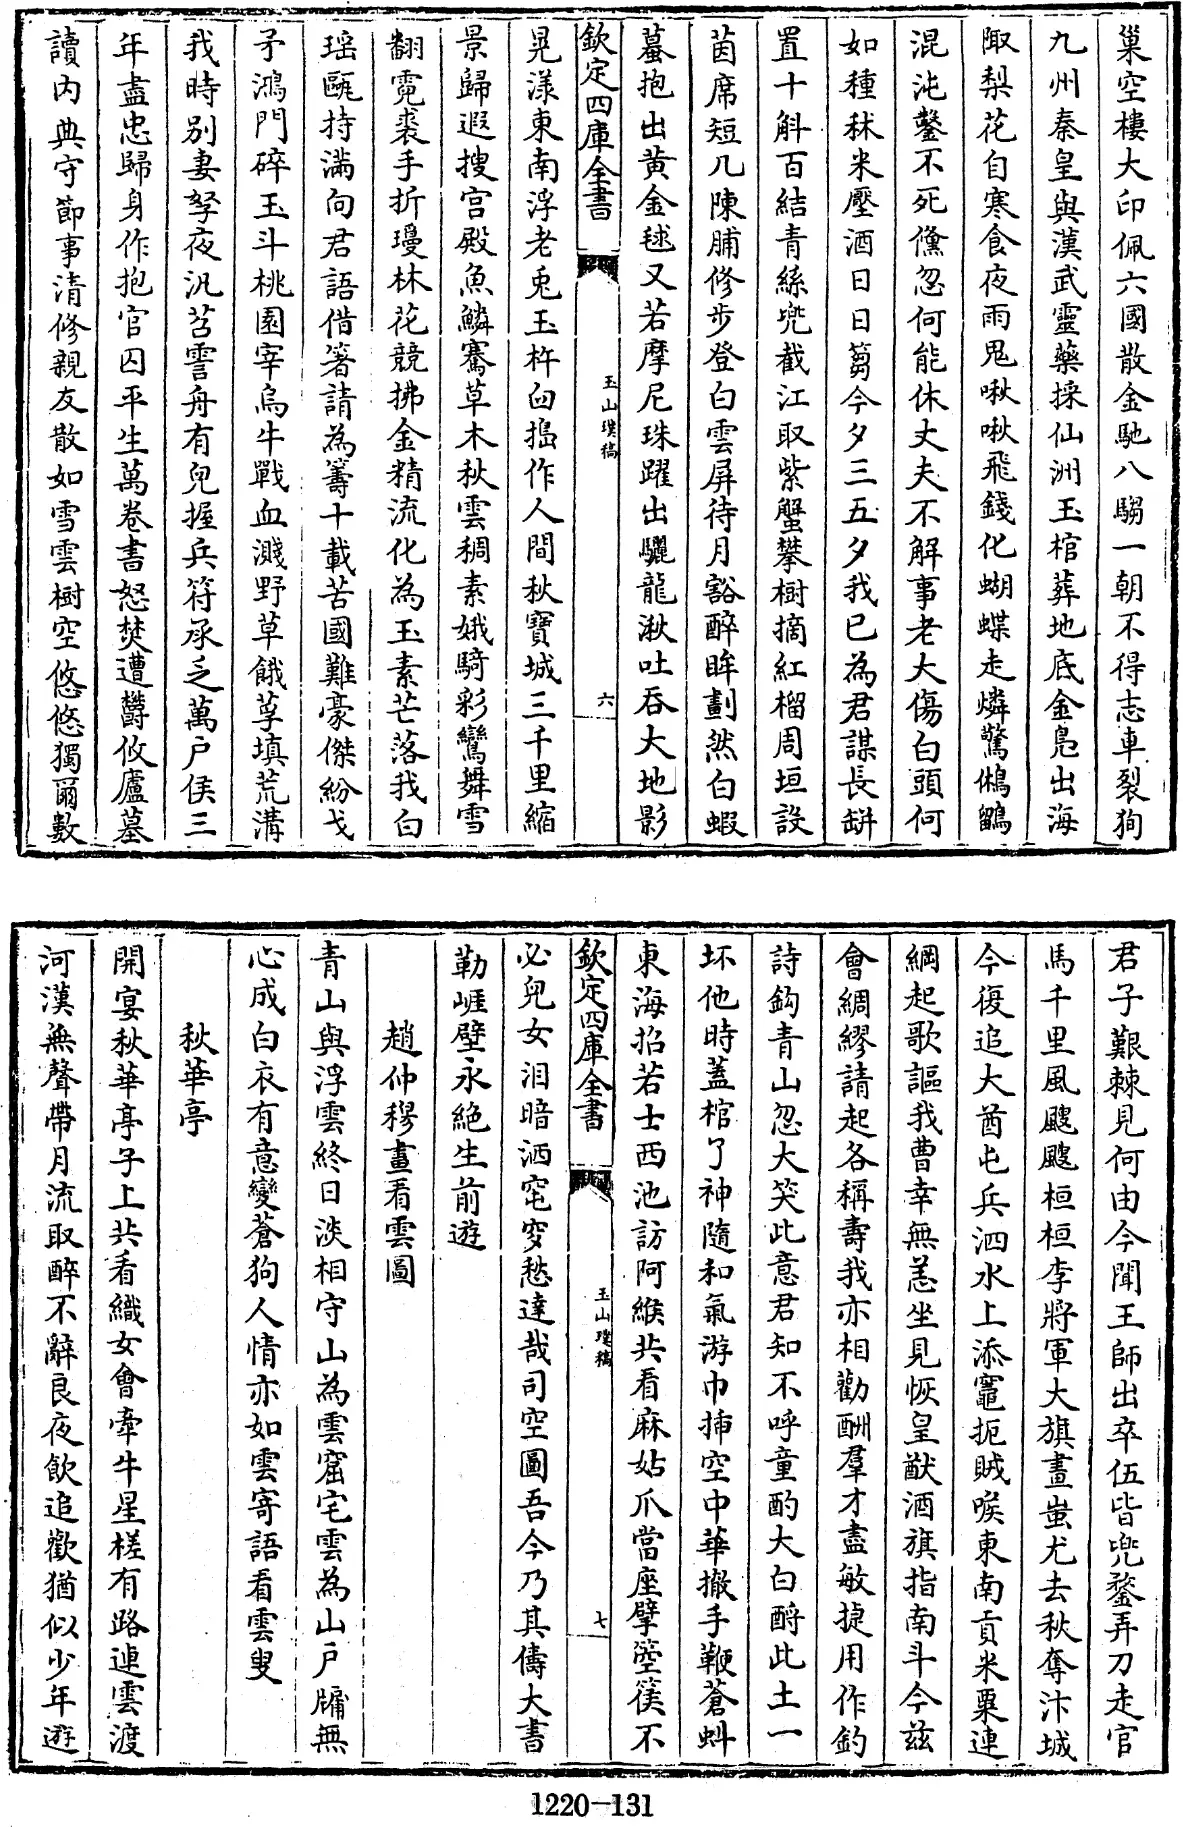 巢空樓大印佩六國散金馳八騶一朝不得志車裂狥
九州秦皇與漢武靈藥採仙洲玉棺葬地底金鳬出海
陬梨花自寒食夜雨鬼啾啾飛錢化蝴蝶走燐驚鵂鶹
混沌鑿不死儵忽何能休丈夫不解事老大傷白頭何
如種秫米壓酒日日篘今夕三五夕我已為君謀長缾
置十斛百結青絲兜截江取紫蟹攀樹摘紅榴周垣設
茵席短几陳脯修步登白雲屏待月豁醉眸劃然白蝦
蟇抱出黄金毬又若摩尼珠躍出驪龍湫吐吞大地影
欽定四庫全書
玉山璞稿
六
晃漾東南浮老兎玉杵臼搗作人間秋寶城三千里縮
景歸遐搜宫殿魚鱗騫草木秋雲稠素娥騎彩鸞舞雪
翻霓裘手折璚林花競拂金精流化為玉素芒落我白
瑶甌持滿向君語借箸請為籌十載苦國難豪傑紛戈
矛鴻門碎玉斗桃園宰烏牛戰血濺野草餓莩填荒溝
我時别妻孥夜汎苕霅舟有兒握兵符承乏萬户侯三
年盡忠歸身作抱官囚平生萬卷書怒焚遭欝攸廬墓
讀内典守節事清修親友散如雪雲樹空悠悠獨爾數
君子艱棘見何由今聞王師出卒伍皆兜鍪弄刀走官
馬千里風颼颼桓桓李將軍大旗畫蚩尤去秋奪汴城
今復追大酋屯兵泗水上添竈扼賊喉東南貢米粟連
綱起歌謳我曹幸無恙坐見恢皇猷酒旗指南斗今兹
會綢繆請起各稱壽我亦相勸酬羣才盡敏捷用作釣
詩鈎青山忽大笑此意君知不呼童酌大白酹此土一
坏他時蓋棺了神隨和氣游巾挿空中華撤手鞭蒼虯
東海招若士西池訪阿緱共看麻姑爪當座擘箜篌不
欽定四庫全書
玉山璞稿
七
必兒女泪暗洒窀穸愁達哉司空圖吾今乃其儔大書
勒崕壁永絶生前遊
趙仲穆畫看雲圖
青山與浮雲終日淡相守山為雲窟宅雲為山户牖無
心成白衣有意變蒼狗人情亦如雲寄語看雲叟
秋華亭
開宴秋華亭子上共看織女會牽牛星槎有路連雲渡
河漢無聲帶月流取醉不辭良夜飲追歡猶似少年遊
1220-131